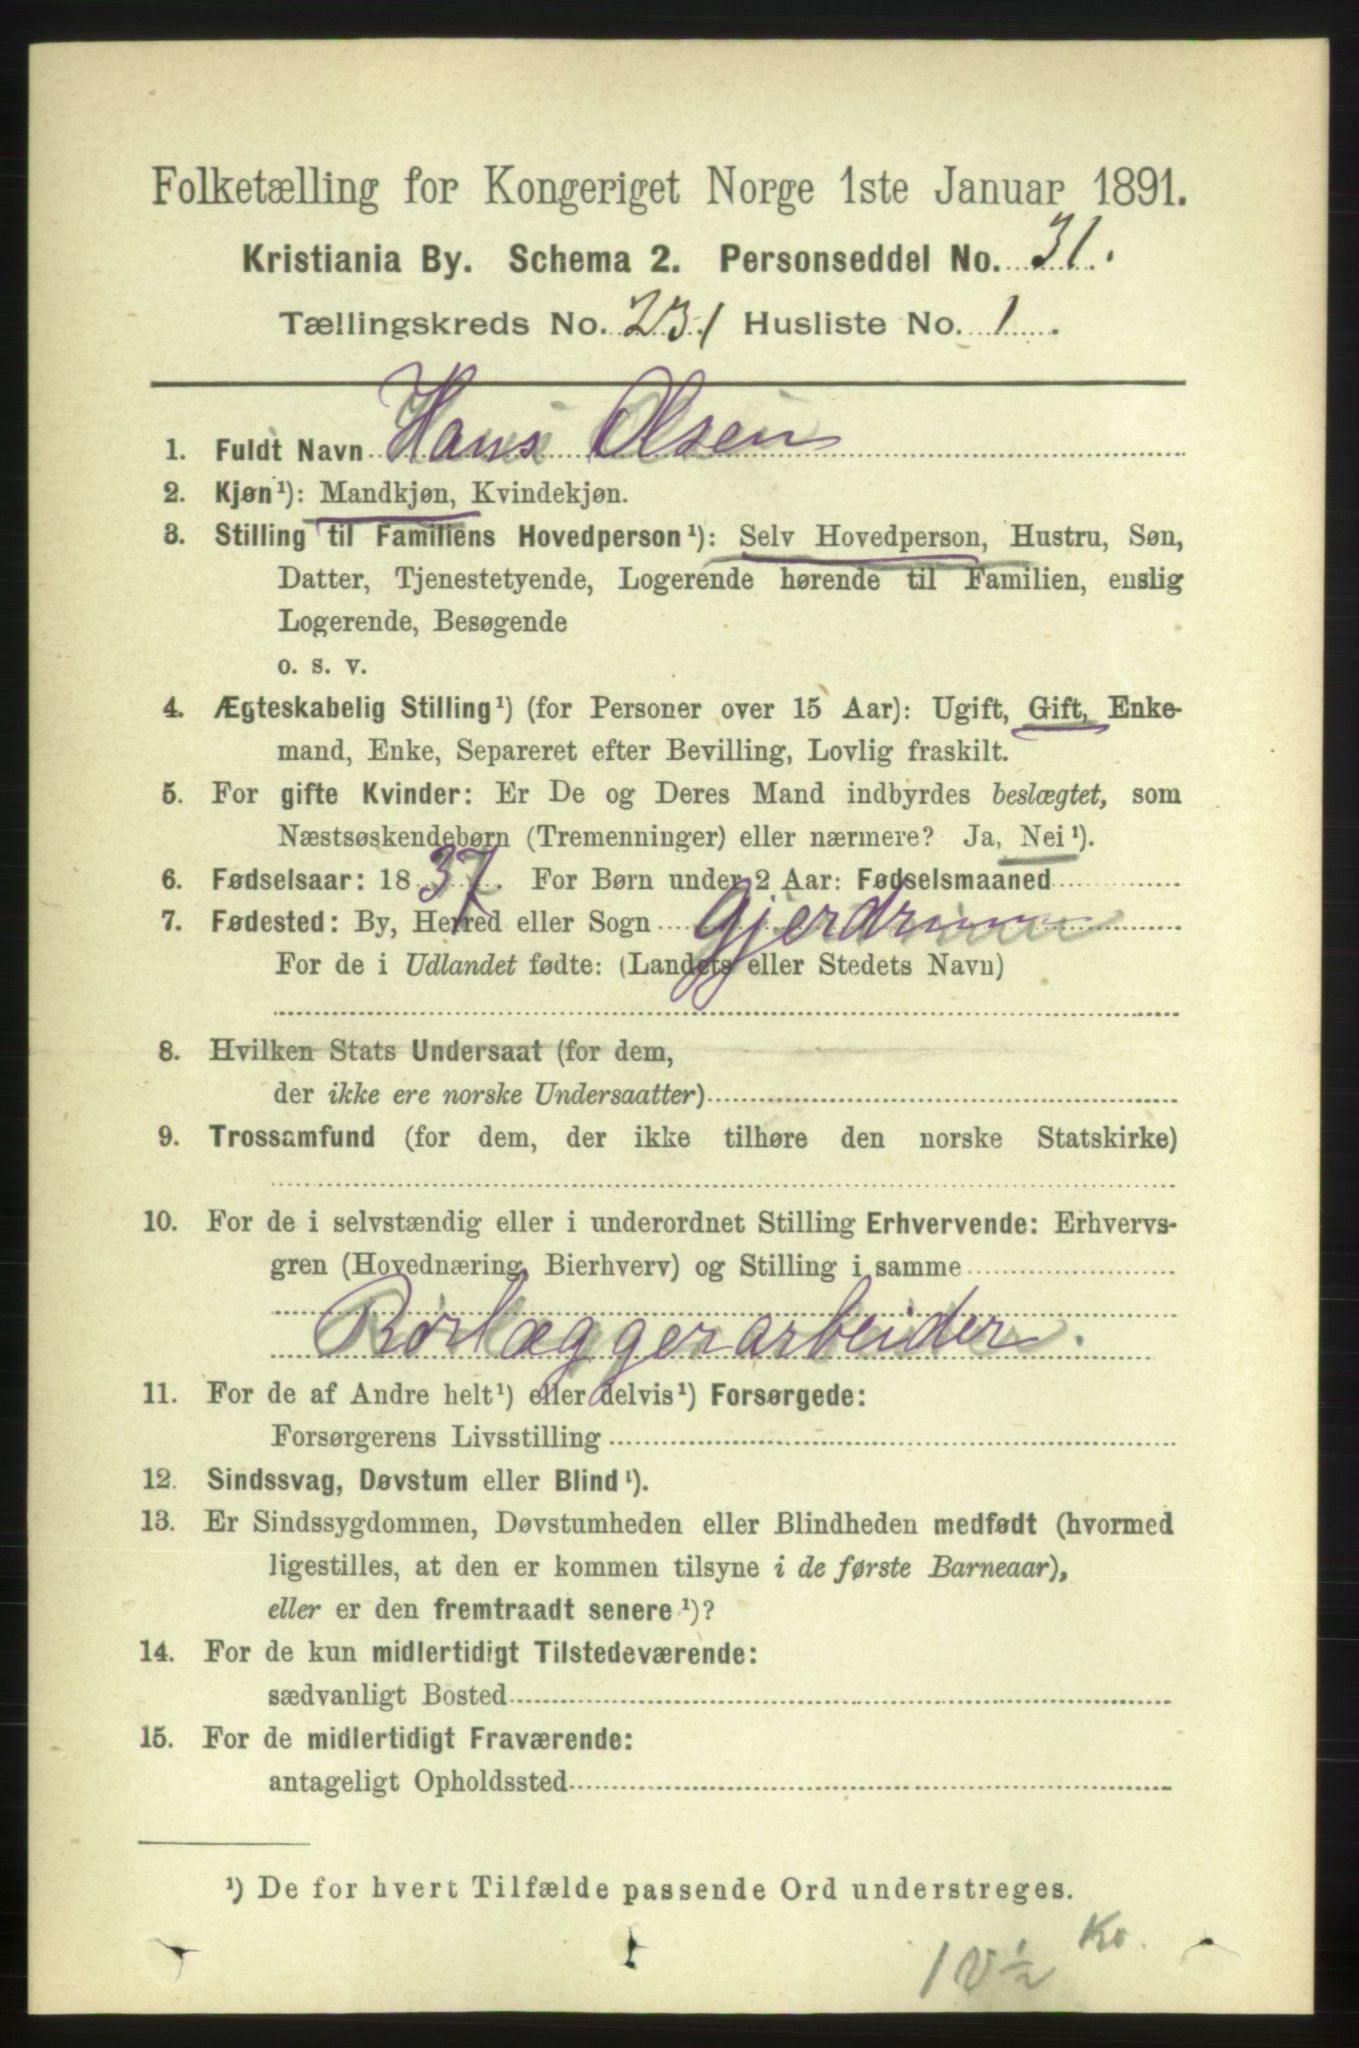 Folketælling for Kongeriget Norge 1ste Januar 1891.
Kristiania By. Schema 2. Personseddel No. 31.
Tællingskreds No. 231 Husliste No. 1.
1. Fuldt Navn Hans Olsen
2. Kjøn¹): Mandkjøn, Kvindekjøn.
3. Stilling til Familiens Hovedperson¹): Selv Hovedperson, Hustru, Søn,
Datter, Tjenestetyende, Logerende hørende til Familien, enslig
Logerende, Besøgende
o. s. v.
4. Ægteskabelig Stilling¹) (for Personer over 15 Aar): Ugift, Gift, Enke-
mand, Enke, Separeret efter Bevilling, Lovlig fraskilt.
5. For gifte Kvinder: Er De og Deres Mand indbyrdes beslægtet, som
Næstsøskendebørn (Tremenninger) eller nærmere? Ja, Nei¹).
6. Fødselsaar: 1837. For Børn under 2 Aar: Fødselsmaaned
7. Fødested: By, Herred eller Sogn Gjerdrum
For de i Udlandet fødte: (Landets eller Stedets Navn)
8. Hvilken Stats Undersaat (for dem,
der ikke ere norske Undersaatter)
9. Trossamfund (for dem, der ikke tilhøre den norske Statskirke)
10. For de i selvstændig eller i underordnet Stilling Erhvervende: Erhvervs-
gren (Hovednæring, Bierhverv) og Stilling i samme
Rørlæggerarbeider.
11. For de af Andre helt¹) eller delvis¹) Forsørgede:
Forsørgerens Livsstilling
12. Sindssvag, Døvstum eller Blind¹).
13. Er Sindssygdommen, Døvstumheden eller Blindheden medfødt (hvormed
ligestilles, at den er kommen tilsyne i de første Barneaar),
eller er den fremtraadt senere¹)?
14. For de kun midlertidigt Tilstedeværende:
sædvanligt Bosted
15. For de midlertidigt Fraværende:
antageligt Opholdssted
¹) De for hvert Tilfælde passende Ord understreges.